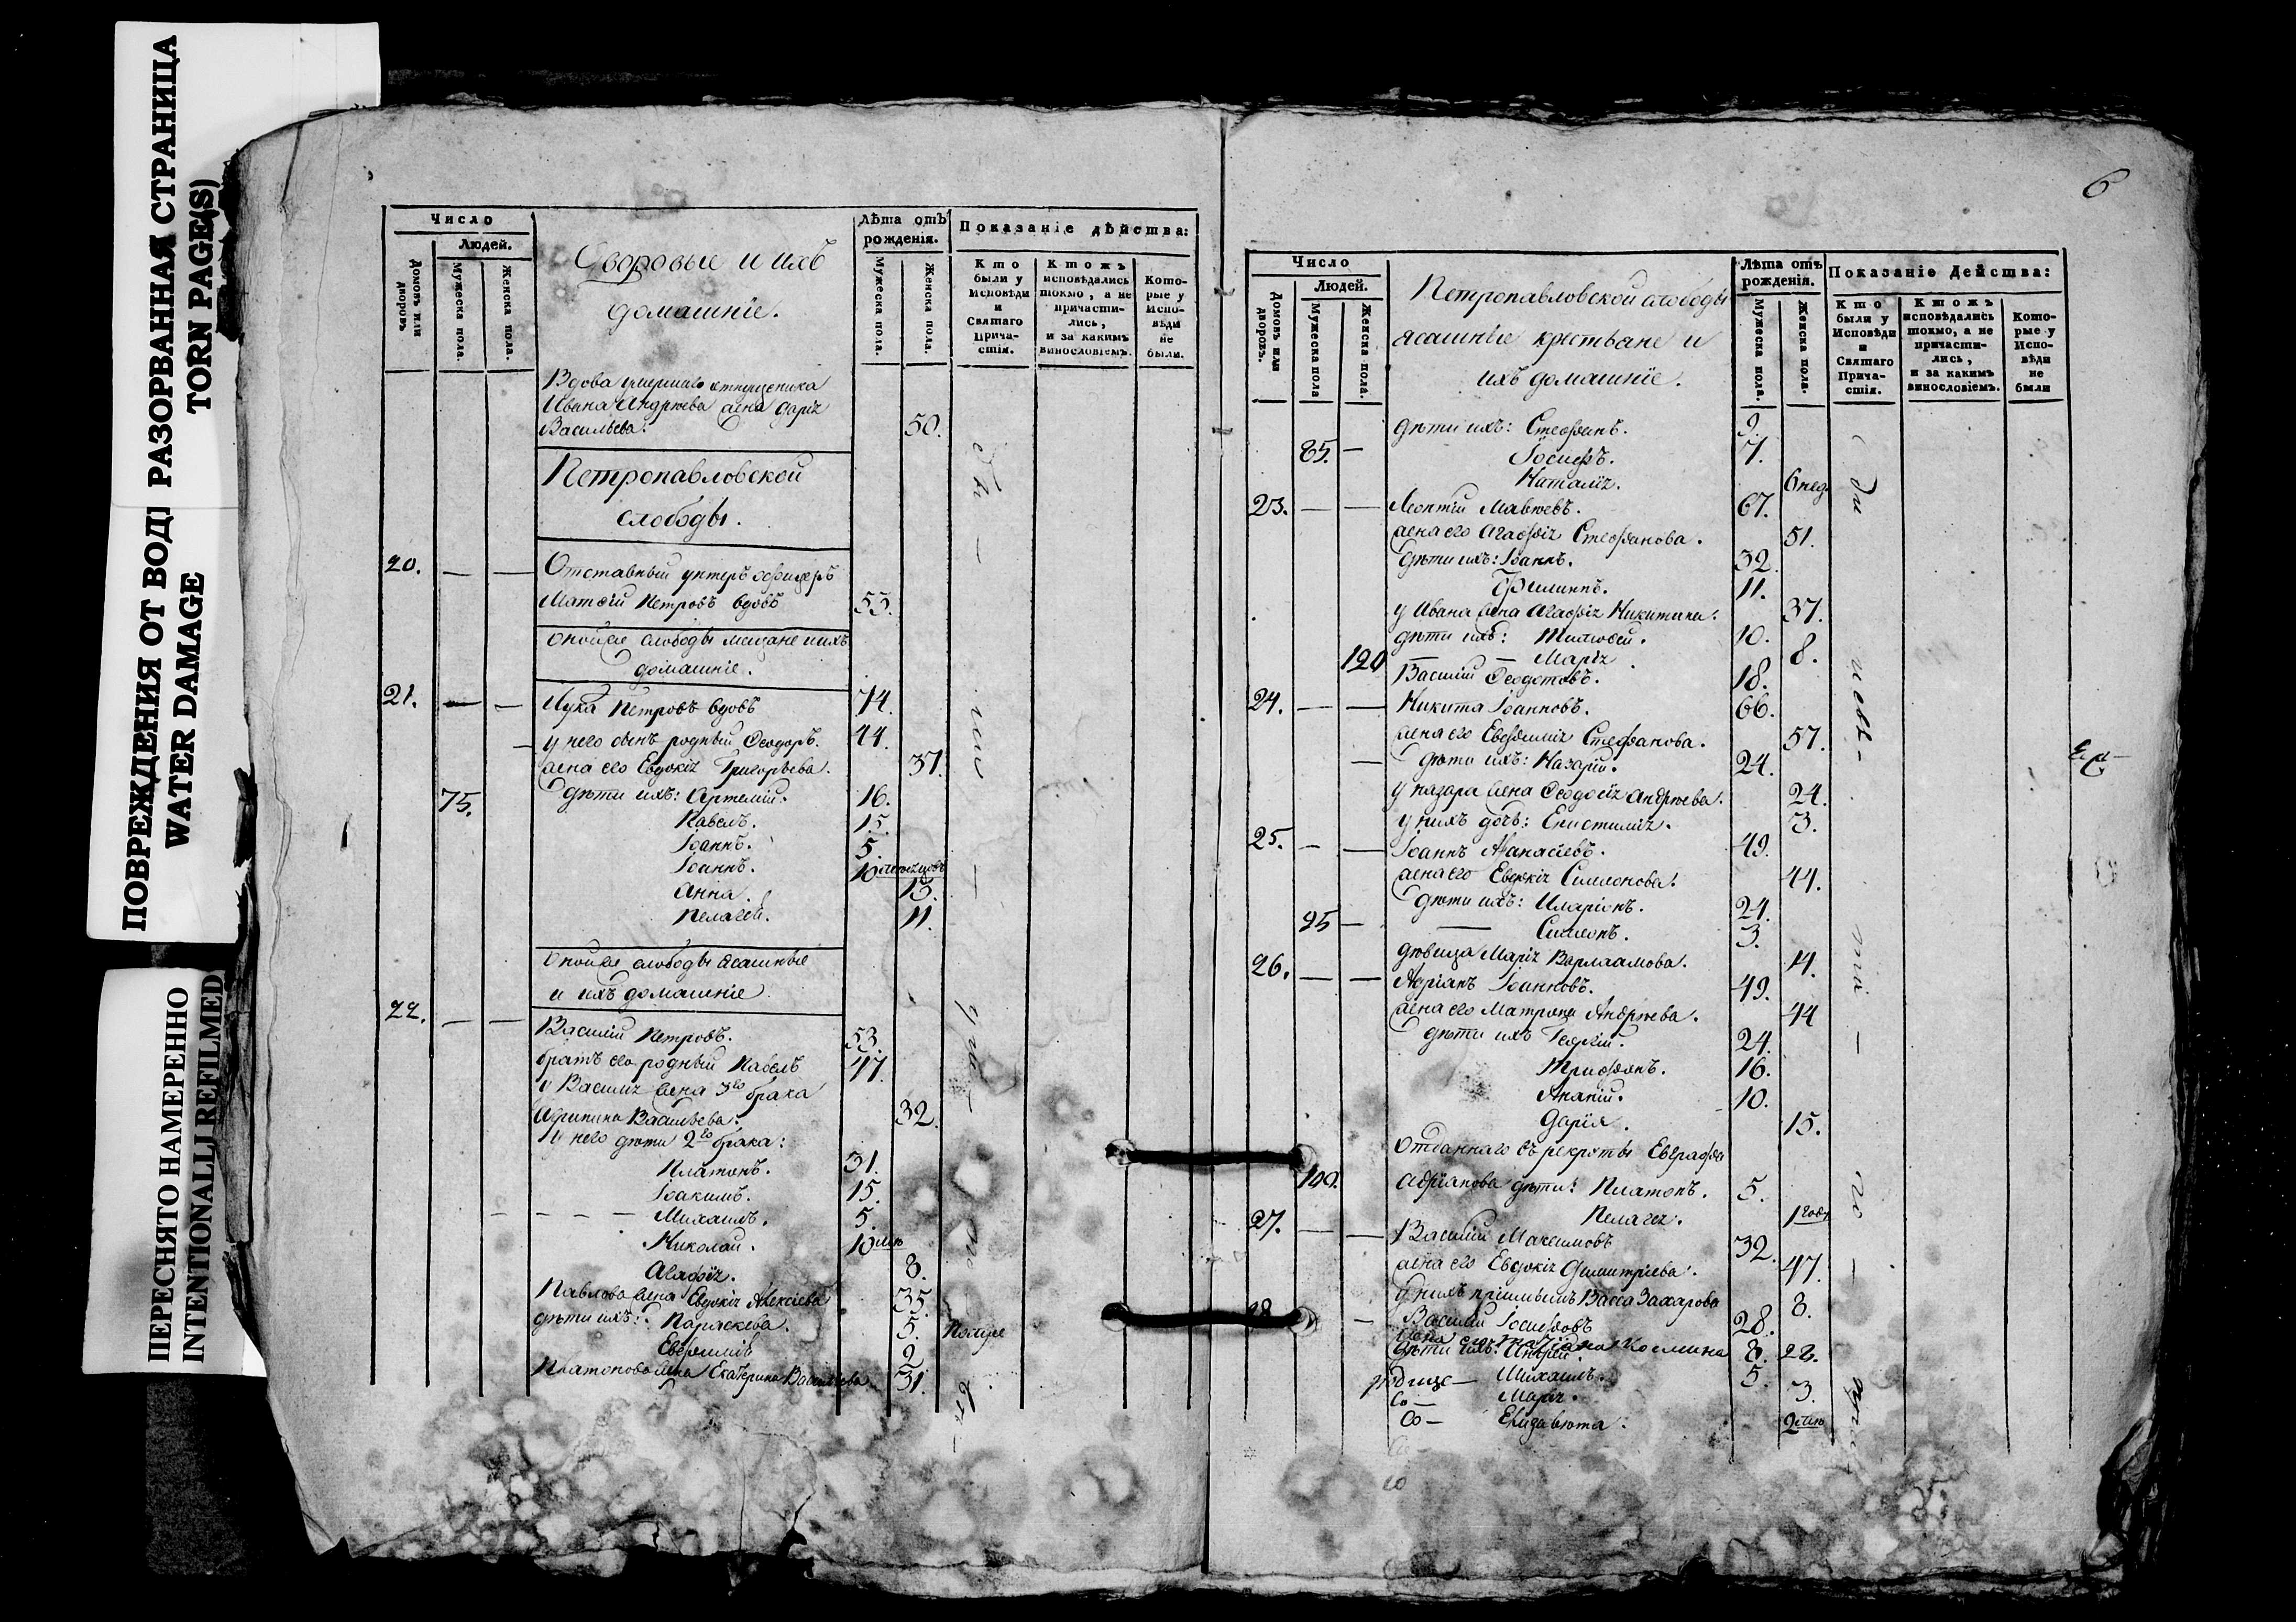 ПОВРЕЖДЕНИЯ ОТ ВОДЫ РАЗОРВАННАЯ СТРАНИЦА
WATER DAMAGE TORN PAGE(S)
ПЕРЕСНЯТО НАМЕРЕННО
INTENTIONALLY REFILMED
Число
Людей.
Домовъ или дворовъ
Мужеска пола.
Женска пола.
Дворовые и ихъ
домашніе.
Лѣта отъ рожденія.
Мужеска пола.
Женска пола.
Показаніе дѣйства:
Кто были у Исповѣди и Святаго Причастія.
Ктожъ исповѣдались токмо, а не причастились, и за какимъ винословіемъ.
Которые у Исповѣди не были.
Вдова умершаго
Ивана Андрѣева жена Дарія
Васильева. 50.
Петропавловской
слободы.
20. — — Отставный унтеръ офицеръ
Матѳій Петровъ вдовъ 53.
Оной же слободы мещане и ихъ
домашніе.
21. — — Лука Петровъ вдовъ 74.
у него сынъ родный Ѳеодоръ. 44.
жена его Евдокія Григорьева. 37.
75. дѣти ихъ: Артемій. 16.
Павелъ. 15.
Іоаннъ. 5.
Іоаннъ. 10
Анна. 13.
Пелагея. 11.
Оной же слободы ясашные
и ихъ домашніе
22. — — Василій Петровъ. 53.
братъ его родный Павелъ 47.
у Василія жена 3го брака
Агрипина Васильева. 32.
у него дѣти 2го брака:
Платонъ. 31.
Іоакимъ. 15.
Михаилъ. 5.
Николай. 10
Агафія. 8.
Павлова жена Евдокія Алексіева 35.
дѣти ихъ: Параскева. 5.
Евфимія 2
Платонова жена Екатерина Васильева 31.
6
Число
Людей.
Домовъ или дворовъ.
Мужеска пола
Женска пола.
Петропавловской слободы
ясашные крестьяне и
ихъ домашніе.
Лѣта отъ рожденія.
Мужеска пола.
Женска пола.
Показаніе Дейсшва:
Кто были у Исповѣди и Святаго Причастія.
Ктожъ исповѣдались токмо, а не причастились, и за какимъ винословіемъ.
Которые у Исповѣди не были
дѣти ихъ: Стефанъ. 9.
85. — Іосифъ. 7.
Наталія. 6 нед.
23. — — Леонтій Матвѣевъ. 67.
жена его Агафія Стефанова. 51.
дѣти ихъ: Іоаннъ. 32.
Филиппъ. 11.
у Ивана жена Агафія Никитина. 37.
дѣти ихъ: Тимоѳей. 10.
120 — — Марія 8.
Василій Ѳедотовъ. 18.
24. — — Никита Іоанновъ. 66.
жена его Евфимія Стефанова. 57.
— дѣти ихъ: Назарій. 24.
у Назара жена Ѳеодосія Андрѣева. 24.
у нихъ дочь: Епистимія. 3.
25. — — Іоаннъ Аѳанасіевъ. 49.
жена его Евдокія Симеонова. 44.
дѣти ихъ: Иларіонъ. 24.
95 — Симеонъ. 3.
дѣвица Марія Варлаамова. 14.
26. — — Адріанъ Іоанновъ. 49.
жена его Матрона Андрѣева. 44
дѣти ихъ Георгій. 24.
Трифонъ. 16.
Ананій. 10.
Дарія. 15.
Отданнаго въ рекруты Евграфа
100. Адріанова дѣти: Платонъ. 5.
Пелагея. 1 годъ
27. — — Василій Максимовъ 32.
жена его Евдокія Димитріева. 47.
у нихъ Васса Захарова 8.
28 — Василій Іосифовъ 28.
жена его Татіана Космина 28.
дѣти ихъ: Андрей. 8.
Михаилъ. 5.
Марія. 3.
Елизавета. 2